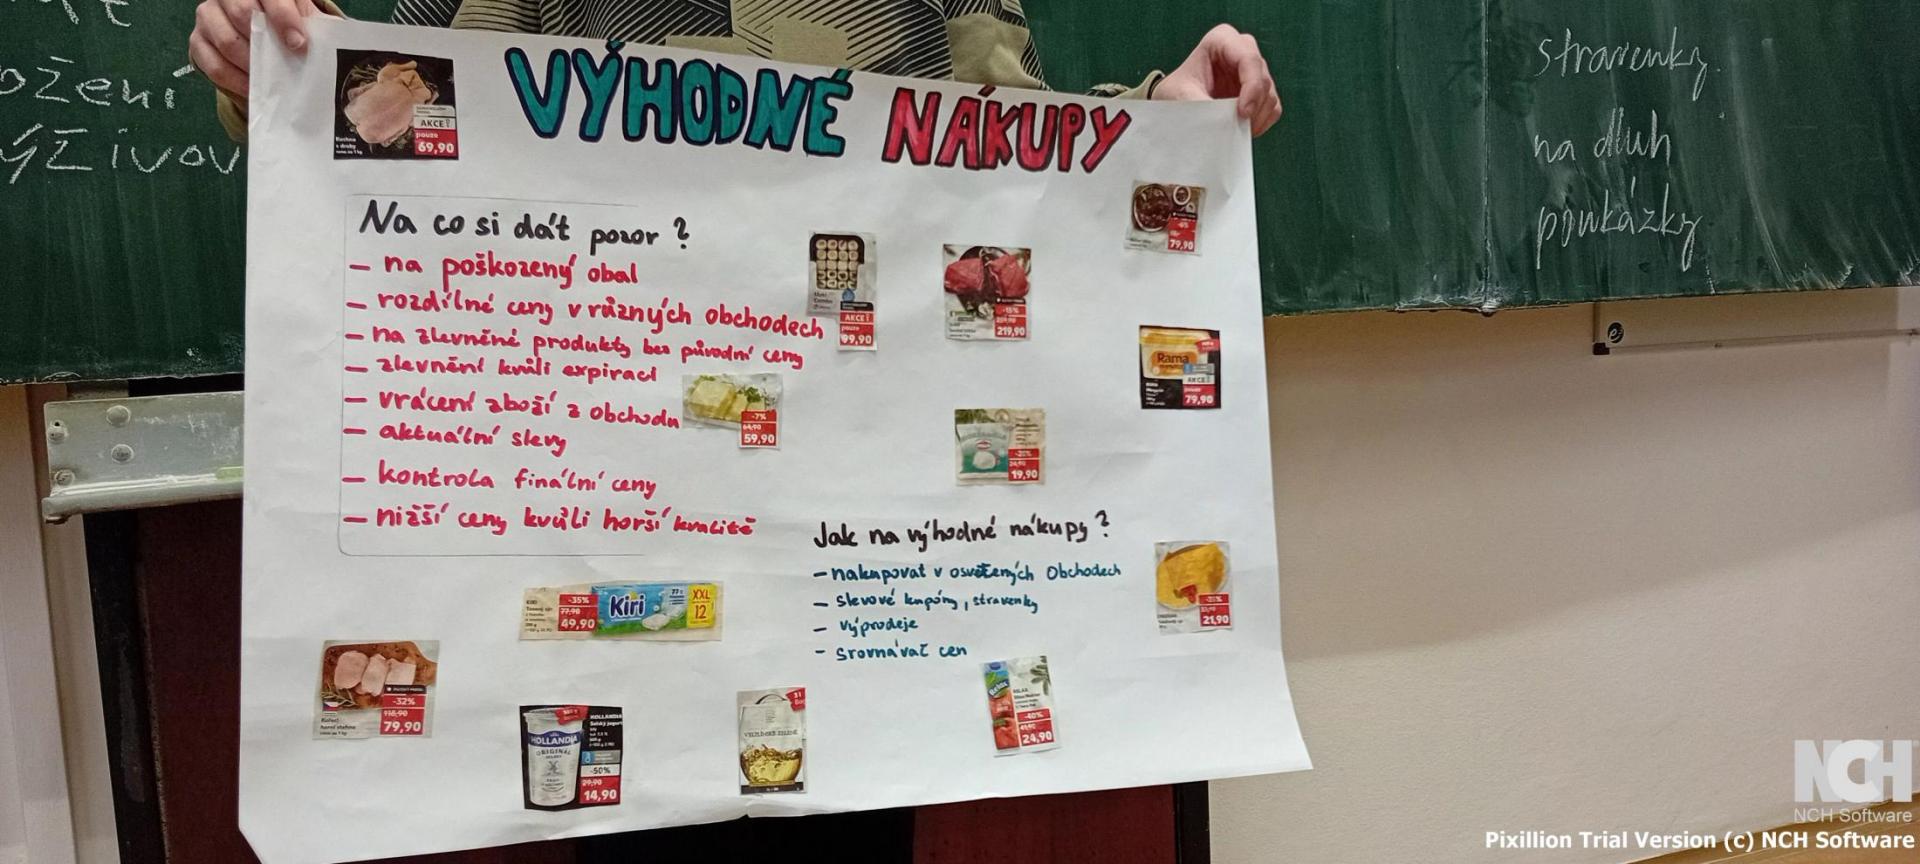 ožení
ýživov
stravenky
na dluh
poukázky
VÝHODNÉ NÁKUPY
AKCE!
pouze
69,90
Na co si dát pozor?
– na poškozený obal
– rozdílné ceny v různých obchodech
– na zlevněné produkty bez původní ceny
– zlevnění kvůli expiraci
– vrácení zboží z obchodu
– aktuální slevy
– kontrola finální ceny
– nižší ceny kvůli horší kvalitě
AKCE!
pouze
99,90
-15%
219,90
79,90
Rama
AKCE!
pouze
79,90
-7%
64,90
59,90
24,90
19,90
Jak na výhodné nákupy?
– nakupovat v osvětených Obchodech
– slevové kupóny, stravenky
– výprodeje
– srovnávač cen
21,90
KIRI
-35%
77,90
49,90
Kiri
XXL
12
-32%
118,90
79,90
HOLLANDIA
Selský jogurt
HOLLANDIA
ORIGINÁL
-50%
29,90
14,90
VELTLÍNSKÉ ZELENÉ
Relax
RELAX
-40%
41,90
24,90
NCH
NCH Software
Pixillion Trial Version (c) NCH Software